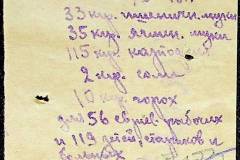 33 кгр. пшеничн. муки
35 кгр. ячмен. муки
115 кгр. картофел
2 кгр. соли
10 кгр. горох
для 56 евреев-рабочих
и 119 детей, стариков и
больных